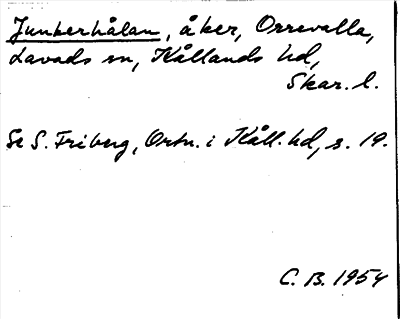 Junkerhålan, åker, Orrevalla,
Lavads sn, Kållands hd,
Skar. l.
Se S. Friberg, Ortn. i Kåll. hd, s. 19.
C. B. 1954